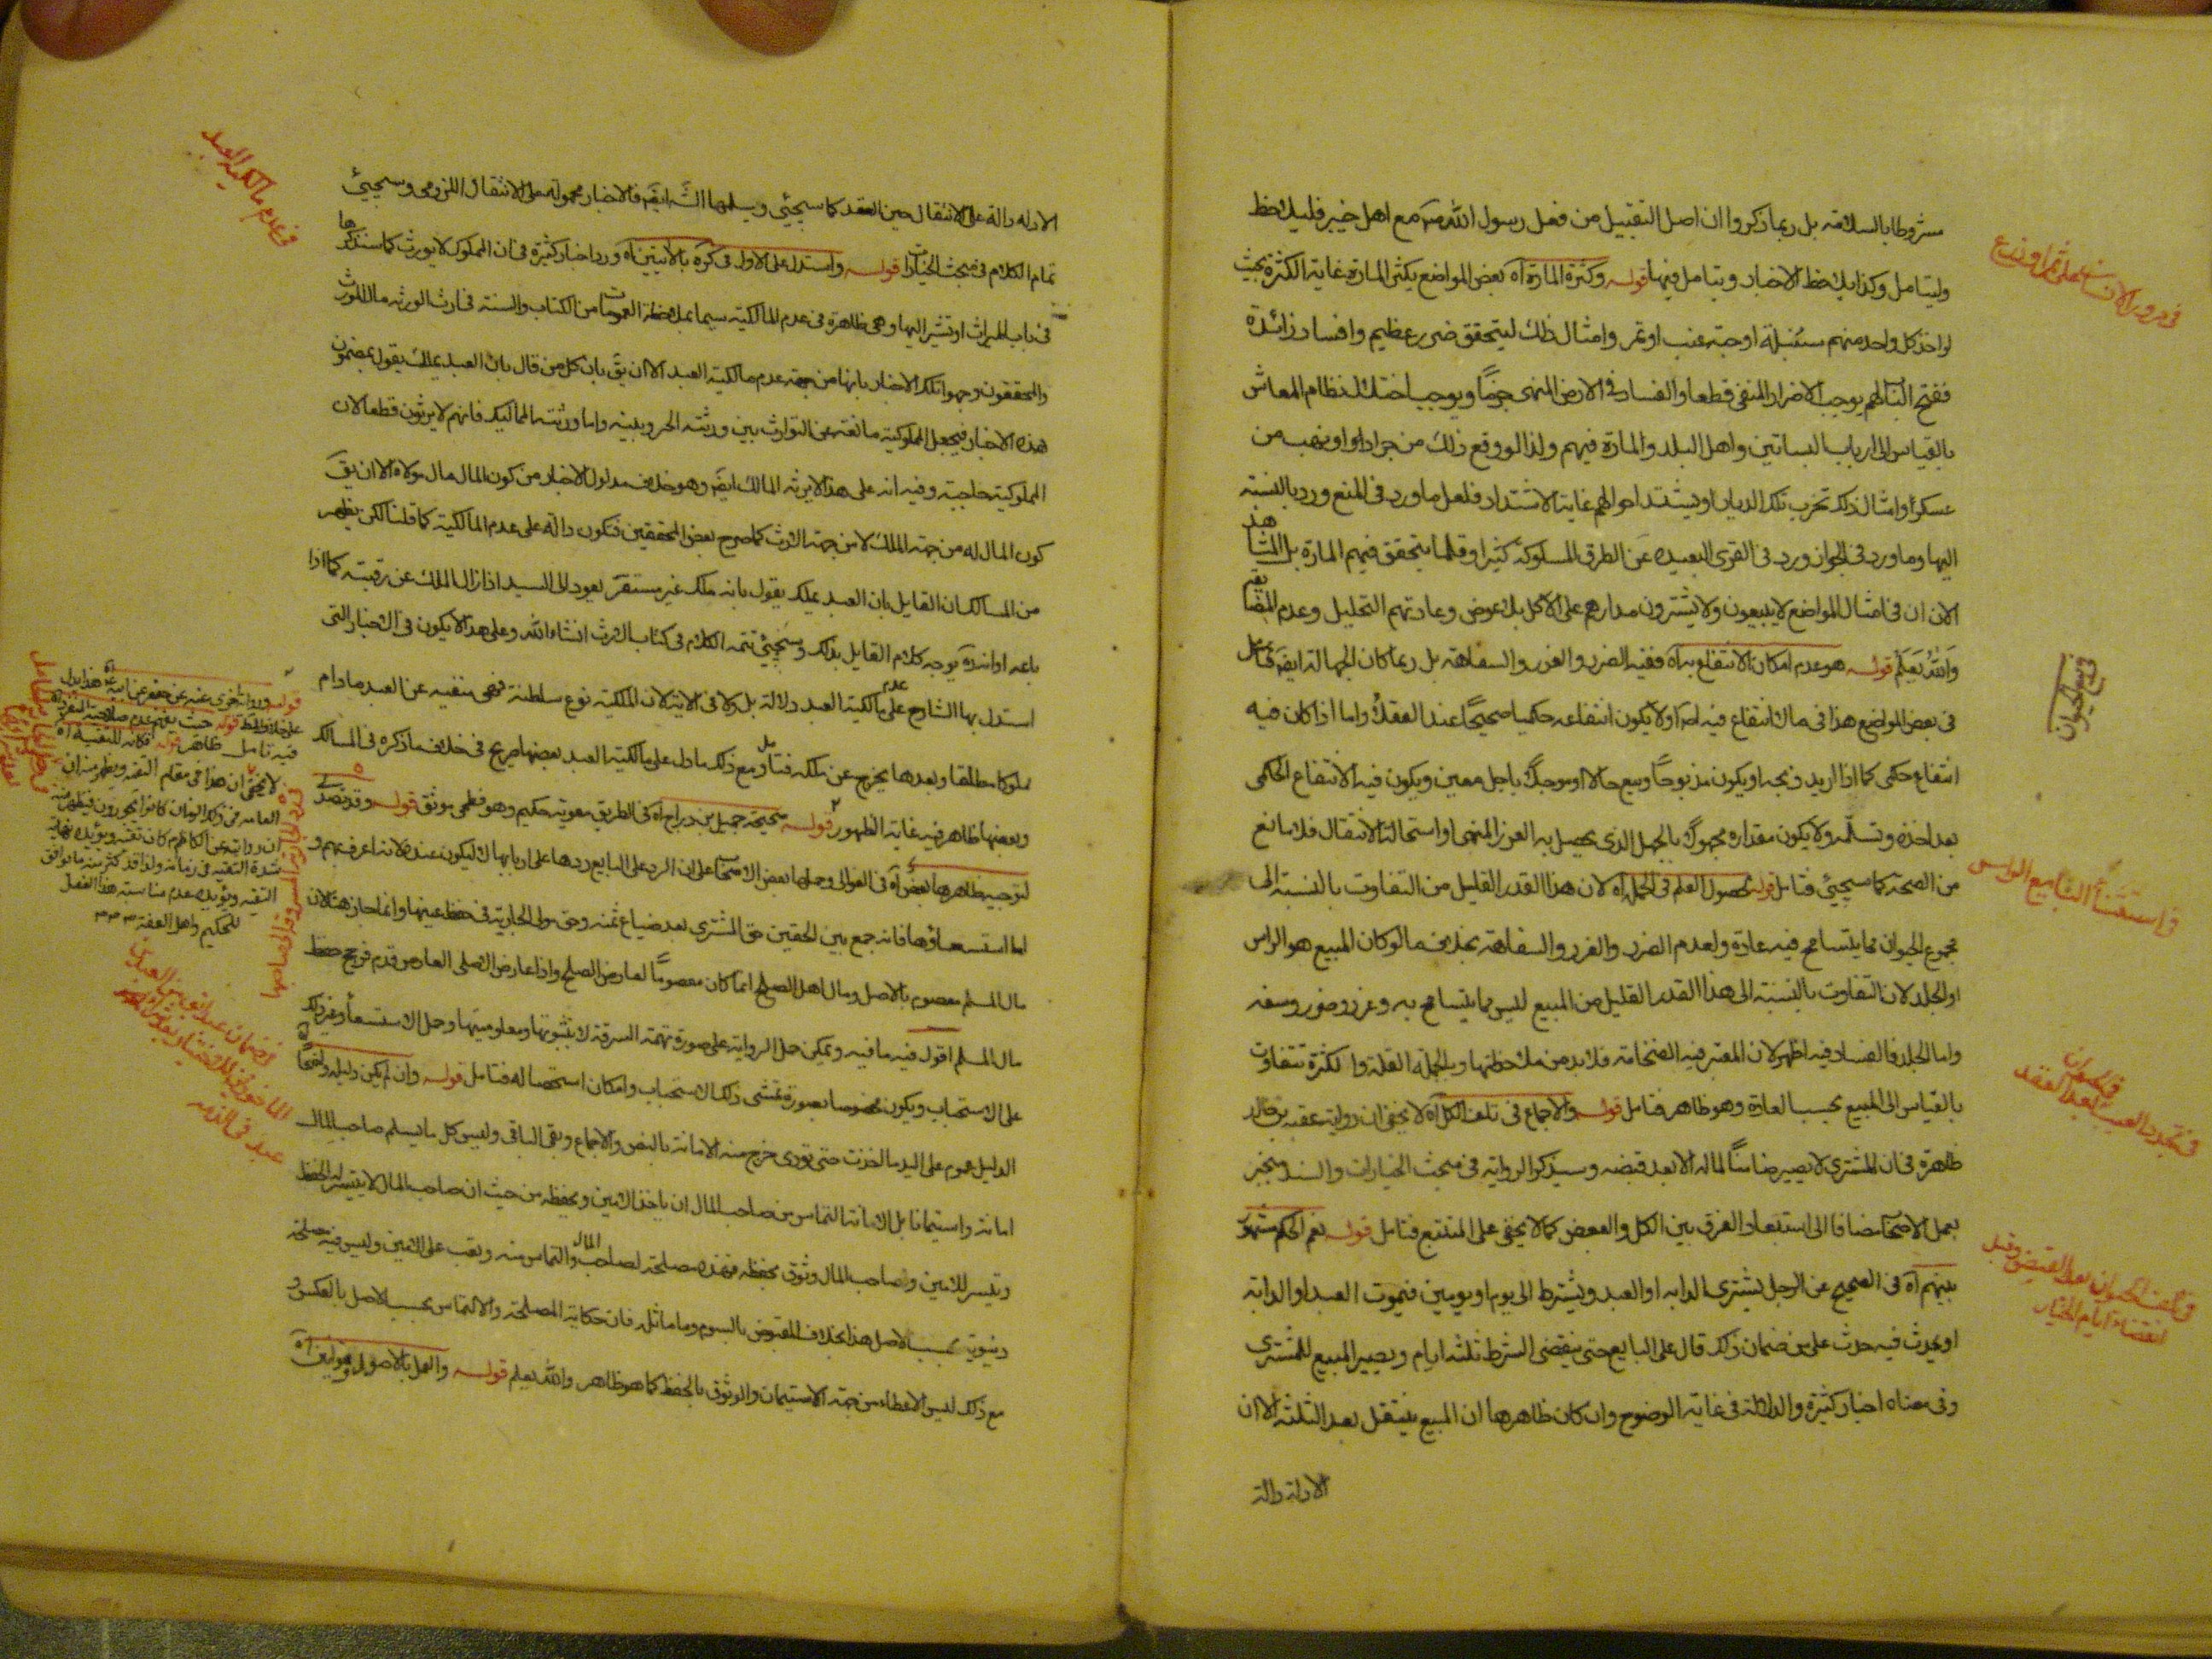 مشروطا بالسلامة بل ربما ذكروا ان اصل التقبيل من فعل رسول الله ص مع اهل خيبر فليلاحظ
وليتامل وكذا يلاحظ الاخبار ويتامل فيها قوله وكثرة المارة آه بعض المواضع يكثر المارة غاية الكثرة بحيث
لو اخذ كل واحد منهم سنبلة او حبة عنب او تمر وامثال ذلك ليتحقق ضرر عظيم وافساد زائدة
ففتح الباب لهم يوجب الاضرار المنفى قطعا والفساد فى الارض المنهى جزما ويوجب اختلال نظام المعاش
بالقياس الى ارباب البساتين واهل البلد والمارة فيهم ولذا لو وقع ذلك من جراد او نهب من
عسكر او امثال ذلك تخرب تلك الديار او يشتد احوالهم غاية الاشتداد فلعل ما ورد فى المنع ورد بالنسبة
اليها وما ورد فى الجواز ورد فى القرى البعيدة عن الطرق المسلوكة كثيرا وقلما يتحقق فيهم المارة بل المشاهد
الان ان فى امثال المواضع لا يبيعون ولا يشترون مدارهم على الاكل بلا عوض وعادتهم التحليل وعدم المضايقة
والله يعلم قوله هو عدم امكان الانتفاع به آه ففيه الضرر والغرر والسفاهة بل ربما كان الجهالة ايضا فتامل
فى بعض المواضع هذا فى مال لا انتفاع فيه اصلا ولا يكون انتفاعه حكميا صحيحا عند العقلاء واما اذا كان فيه
انتفاع حكمى كما اذا اريد ذبحه او يكون مذبوحا وبيع حالا او موجلا باجل معين ويكون فيه الانتفاع الحكمى
بعد اخذه وتسلمه ولا يكون مقداره مجهولا بالجهل الذى يحصل به الغرر المنهى او استحالة الانتقال فلا مانع
من الصحة كما سيجيئ فتامل قوله لحصول العلم فى الجملة آه لان هذا القدر القليل من التفاوت بالنسبة الى
مجموع الحيوان مما يتسامح فيه عادة ولعدم الضرر والغرر والسفاهة بخلاف ما لو كان المبيع هو الراس
او الجلد لان التفاوت بالنسبة الى هذا القدر القليل من المبيع ليس مما يتسامح به وغرر وضرر وسفه
واما الجلد فالفساد فيه اظهر لان المعتبر فيه الضخامة فلا بد من ملاحظتها وبالجملة القلة والكثرة تتفاوت
بالقياس الى المبيع بحسب العادة وهو ظاهر فتامل قوله والاجماع فى تلف الكل آه لا يخفى ان رواية عقبة بن خالد
ظاهرة فى ان المشترى لا يصير ضامنا لماله الا بعد قبضه وسيذكر الرواية فى مبحث الخيارات والسند منجبر
بعمل الاصحاب مضافا الى استبعاد الفرق بين الكل والبعض كما لا يخفى على المتتبع فتامل قوله نعم الحكم مشهور
بينهم آه فى الصحيح عن الرجل يشترى الدابه او العبد ويشترط الى يوم او يومين فيموت العبد او الدابة
او يحدث فيه حدث على من ضمان ذلك قال على البايع حتى ينقضى الشرط ثلثة ايام ويصير المبيع للمشترى
وفى معناه اخبار كثيرة والدلالة فى غاية الوضوح وان كان ظاهرها ان المبيع ينتقل بعد الثلثة الا ان
الادلة دالة
فى مرور الانسان على ثمر او زرع
بيع الحيوان
فى استثناء البايع الراس
فى تجدد العيب بعد العقد
فى تلف الحيوان بعد القبض وقبل
انقضاء ايام الخيار
الادلة دالة على الانتقال حين العقد كما سيجيئ ويسلمها الش ايضا فالاخبار محمولة على الانتقال اللزومى وسيجيئ
تمام الكلام فى مبحث الخيارات قوله واستدل على الاول فى كره بالآيتين آه ورد اخبار كثيرة فى ان المملوك لا يورث كما سنذكرها
فى باب الميراث او نشير اليها وهى ظاهرة فى عدم المالكية سيما بملاحظة العمومات من الكتاب والسنة فى ارث الورثه مال المورث
والمحققون وجهوا تلك الاخبار بانها من جهة عدم مالكية العبد الا ان يق بان كل من قال بان العبد يملك يقول بمضمون
هذه الاخبار فيجعل المملوكية مانعة عن التوارث بين ورثته الحر وبينه واما ورثته المماليك فانهم لا يرثون قطعا لان
المملوكية حاجبة وفيه انه على هذا لا يرثه المالك ايضا وهو خلاف مدلول الاخبار من كون المال مال مولاه الا ان يق
كون المال له من جهة الملك لا من جهة الارث كما صرح بعض المحققين فتكون دالة على عدم المالكية كما قلنا لكن يظهر
من المسالك ان القايل بان العبد يملك يقول بانه ملك غير مستقر يعود الى السيد اذا زال الملك عن رقبته كما اذا
باعه او اتنده يوجه كلام القايل بذلك وسيجيئ تتمه الكلام فى كتاب الارث انشاء الله وعلى هذا لا يكون فى الاخبار التى
استدل بها الشارح على عدم مالكية العبد دلالة بل ولا فى الاية لان الملكية نوع سلطنة فهى منفيه عن العبد ما دام
مملوكا مطلقا وبعدها يخرج عن ملكه فتامل ومع ذلك ما دل على مالكية العبد بعضها صريح فى خلاف ما ذكره فى المسالك
وبعضها ظاهر فيه غاية الظهور قوله صحيحة جميل بن دراج آه فى الطريق معوية بن حكيم وهو فطحى موثق قوله وقد تصدى
لتوجيه ظاهرها بعض آه فى الغوالى وحملها بعض الاصحاب على ان الرد على البايع ردها على اربابها لا ليكون عنده لانه اعرف بهم و
اما استسعاؤها فانه جمع بين الحقين حق المشترى بعد ضياع ثمنه وحق مولى الجارية فى حفظ عينها وانما جاز هذا لان
مال المسلم معصوم بالاصل ومال اهل الصلح انما كان معصوما لعارض الصلح واذا عارض الاصلى العارض قدم فرجح حفظ
مال المسلم اقول فيه ما فيه ويمكن حمل الرواية على صورة تهمة السرقة لا ثبوتها ومعلوميتها وحمل الاستسعاء وغير ذلك
على الاستحباب ويكون مخصوصا بصورة تمشى ذلك الاستحباب وامكان استحصاله فتامل قوله وان لم يكن دليله واضحا
الدليل عموم على اليد ما اخذت حتى تؤدى خرج منه الامانة بالنص والاجماع وبقى الباقى وليس كل ما يسلم صاحب المال
امانة واستيمانا بل الامانة التماس من صاحب المال ان ياخذ الامين ويحفظه من حيث ان صاحب المال لا يتيسر له الحفظ
ويتيسر للامين ولصاحب المال وثوق بحفظه فهذه مصلحة لصاحب المال والتماس منه وتعب على الامين وليس فيه مصلحة
دنيوية بحسب الاصل هذا بخلاف المقبوض بالسوم وما ماثله فان حكاية المصلحة والالتماس بحسب الاصل بالعكس و
مع ذلك ليس الاعطاء من جهة الاستيمان والوثوق بالحفظ كما هو ظاهر والله يعلم قوله والعمل بالاصول والقوانين آه
فى عدم مالكية العبد
لا يخفى ان هذا فى مقام التقية ويظهر منه ان
العامه فى ذلك الزمان كانوا يجوزون فيظهر منه
شدة التقية فى زمانه ولذا قد كثر منه ما يوافق
التقيه ويؤيده عدم مناسبة هذا الفعل
للحكيم واهل العفة
عبد فى الذمه